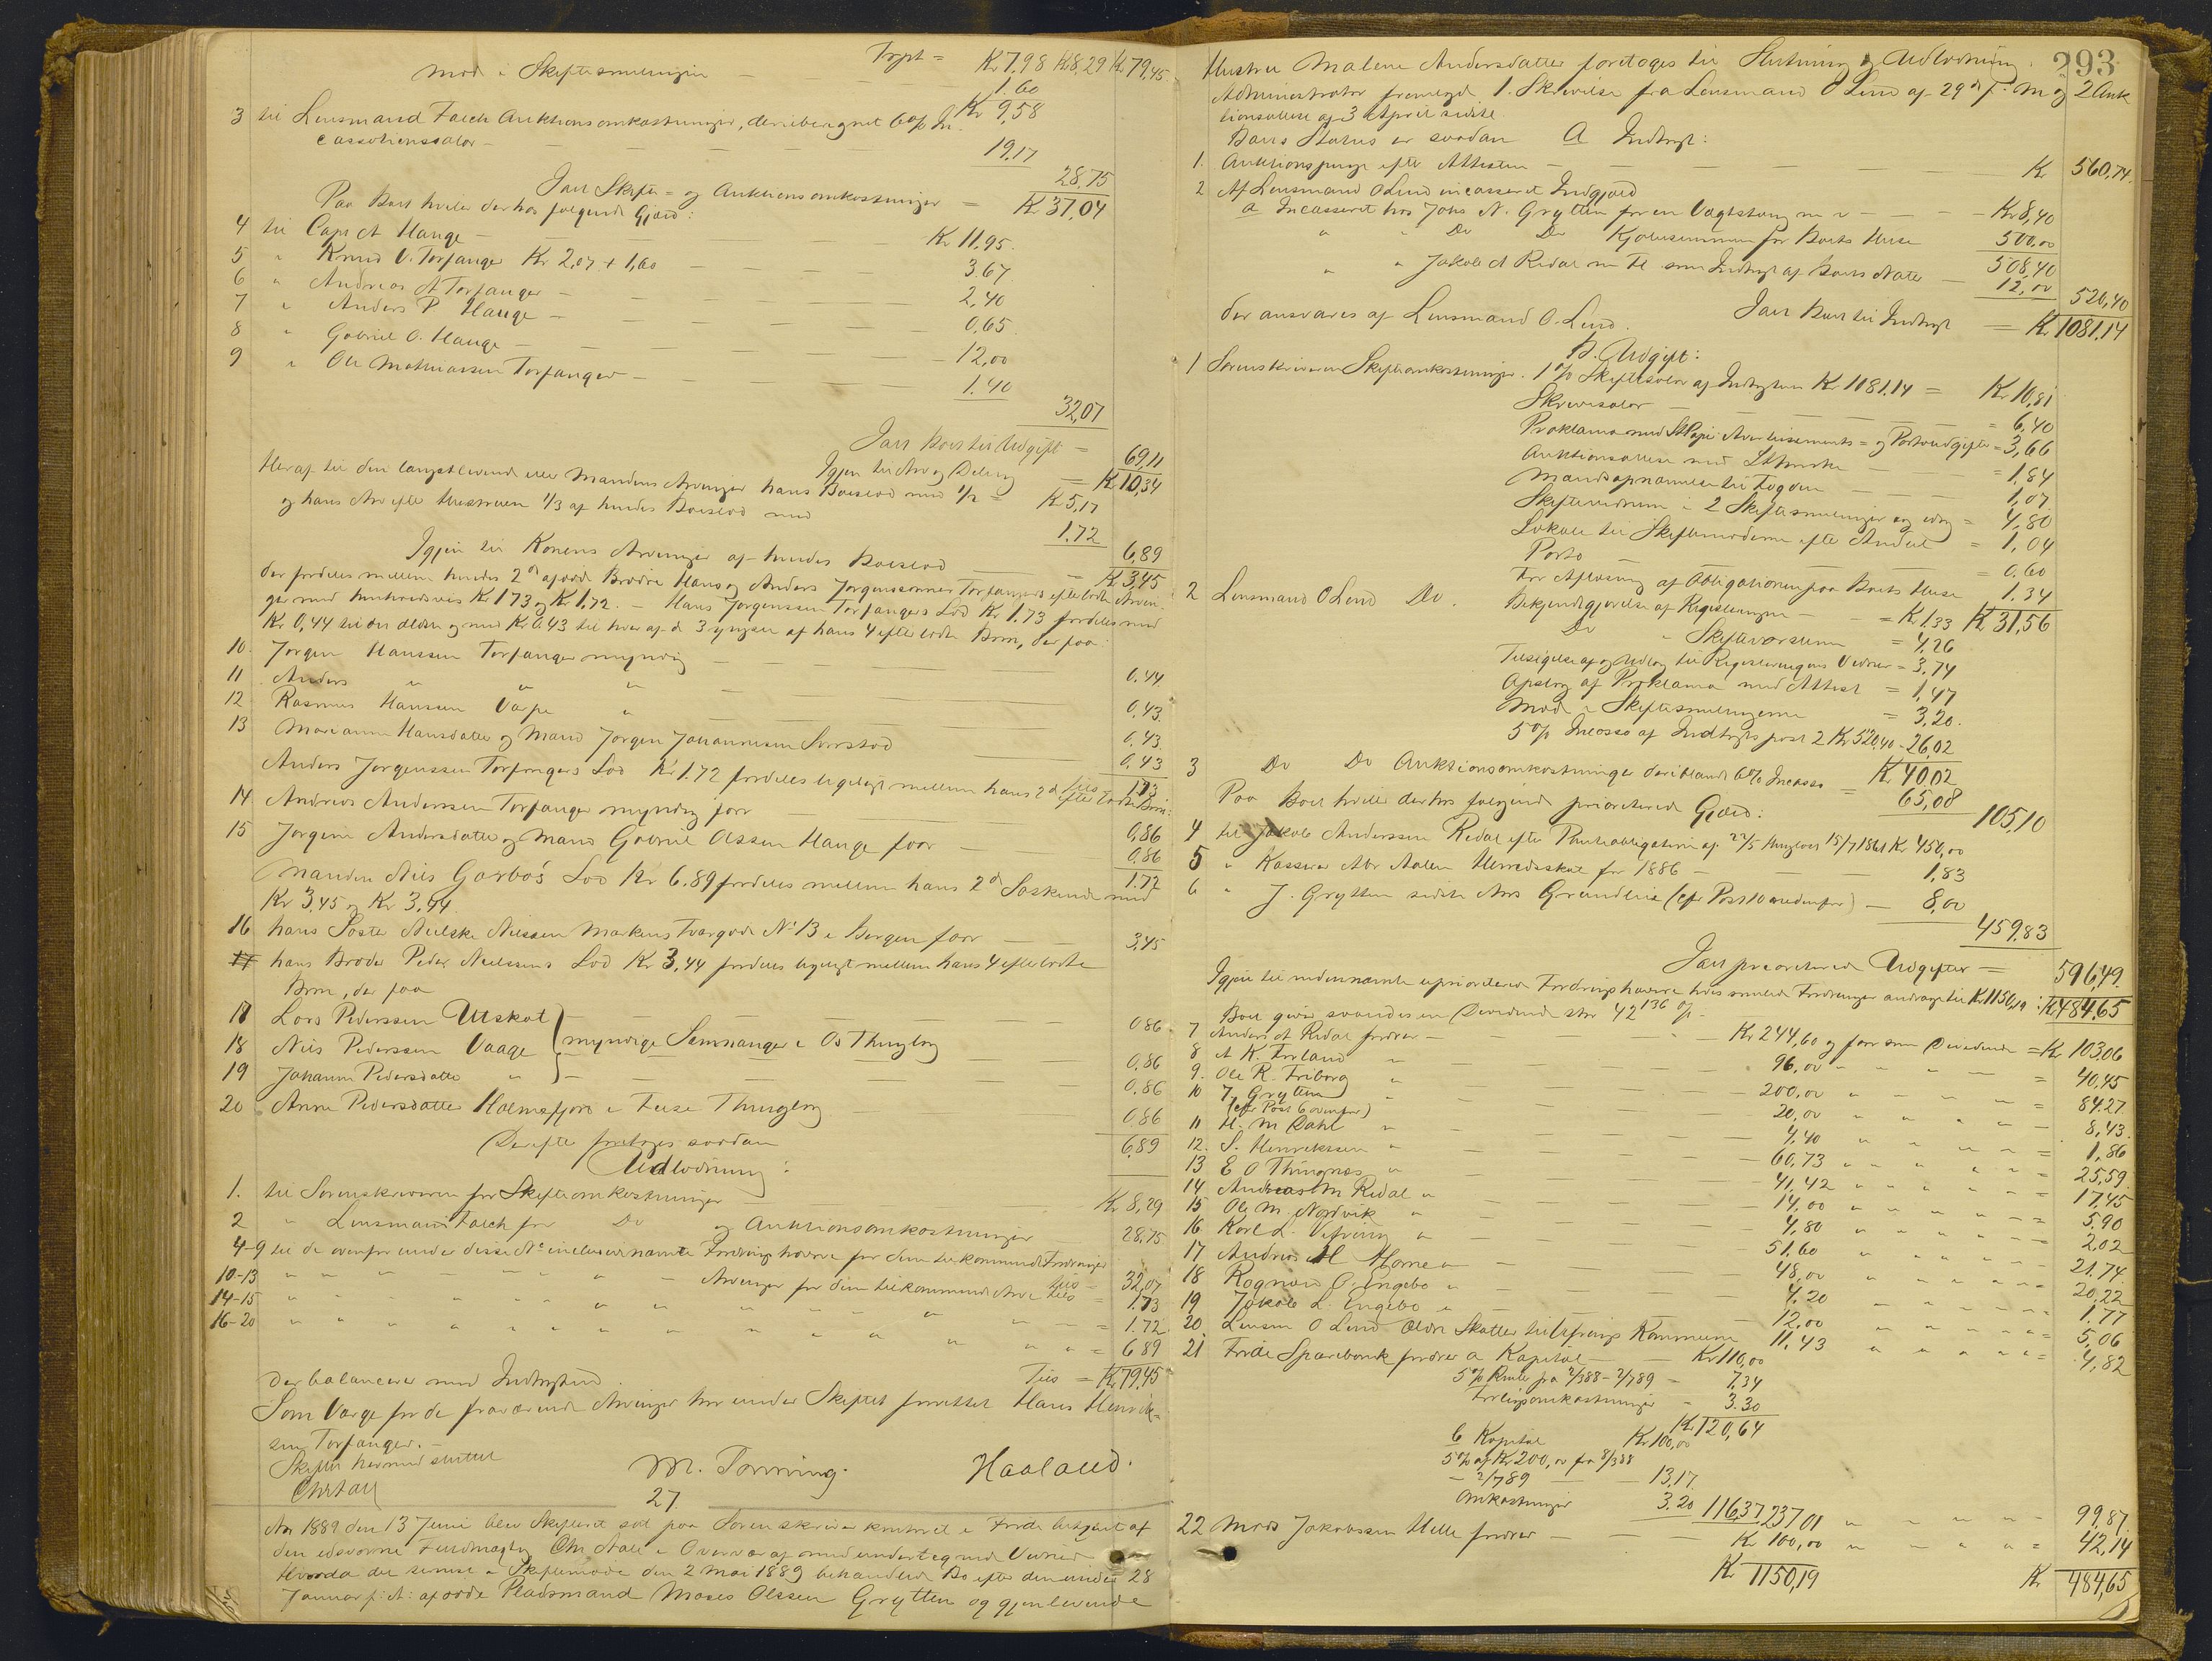 Trpt = Kr 7,98 Kr 8,29 Kr 79,45
Møde i Skiftesamlingen — 1.60
Kr 9,58
3 til Lensmand Falch Auktionsomkostninger, deriberegnet 6% In-
cassationssalær — 19,17
28,75
Jalt Skifte- og Auktionsomkostninger = Kr 37,04
Paa Boet hviler derhos følgende Gjæld:
4 til Capt A Hauge — Kr 11,95.
5 " Knud O. Torfanger Kr 2,07 + 1,60 — 3,67
6 " Andreas A Torfanger — 2,40
7 " Anders P Hauge — 0,65
8 " Gabriel O. Hauge — 12,00
9 " Ole Mathiassen Torfanger — 1.40
32,07
Jalt Boets Udgift = 69,11
Igjen til Arv og Deling — Kr 10,34
Heraf til den længstlevende eller Mandens Arvinger hans Boeslod med 1/2 = Kr 5,17
og hans Arv efter Hustruen 1/3 af hendes Boeslod med 1.72
6,89
Igjen til Konens Arvinger af hendes Boeslod — = Kr 3,45
der fordeles mellem hendes 2de afdøde Brødre Hans og Anders Jørgenssønner Torfangers efterladte Arvin-
ger med henholdsvis Kr 1.73 og Kr 1,72. — Hans Jørgenssen Torfangers Lod Kr 1.73 fordeles med
Kr 0,44 til den ældste og med Kr 0.43 til hver af de 3 yngste af hans 4 efterladte Børn, der faa:
10. Jørgen Hanssen Torfanger myndig — 0.44
11 Anders " " " — 0,43
12 Rasmus Hanssen Varpe " — 0,43
13 Marianne Hansdatter og Mand Jørgen Johannessen Sørstad 0,43
Tils 1.73
Anders Jørgenssen Torfangers Lod Kr 1.72 fordeles ligeligt mellem hans 2de efterladte Børn:
14 Andreas Anderssen Torfanger myndig faar — 0,86
15 Jørgine Andersdatter og Mand Gabriel Olssen Hauge faar — 0,86
1.72
Manden Nils Garbos Lod Kr 6.89 fordeles mellem hans 2de Søskende med
Kr 3,45 og Kr 3,44.
16 hans Søster Nilske Nilssen Markens Tvargade No 13 i Bergen faar — 3,45
17 hans Broder Peder Neelssens Lod Kr 3,44 fordeles ligeligt mellem hans 4 efterladte
Børn, der faa
17 Lars Pederssen Utskot — 0,86
18 Nils Pederssen Vaage } myndige Samnanger i Os Thinglag — 0,86
19 Johanne Pedersdatter " — 0,86
20 Anne Pedersdatter Holmefjord i Fuse Thinglag 0,86
6,89
Derefter foretoges saadan
Udlodning:
1. til Sorenskriveren for Skifteomkostninger — Kr 8,29
2 " Lensmand Falch for Do og Auktionsomkostninger 28,75
4-9 til de ovenfor under disse No inclusive nævnte Fordringshavere for dem tilkommende Fordringer tils = 32,07
10-13 " " " " " " " Arvinger for dem tilkommende Arv tils = 1.73
14-15 " " " " " " " " " " " = 1.72
16-20 " " " " " " " " " " " = 6.89
Tils = Kr 79,45
der balancerer med Indtægten.
Som Værge for de fraværende Arvinger har under Skiftet forrettet Hans Henrik-
sen Torfanger. —
Skiftet hermed sluttet
Chr Aall
M. Tonning. Haaland.
27.
Aar 1889 den 13 Juni blev Skifteret sat paa Sorenskriverkontoret i Førde betjent af
den edsvorne Fuldmægtig Chr Aall i Overvær af medundertegnede Vidner
Hvorda det senest i Skiftemøde den 2 Mai 1889 behandlede Bo efter den under 28
Januar f. A. afdøde Pladsmand Moses Olssen Grytten og gjenlevende
293
Hustru Malene Andersdatter foretoges til Slutning og Udlodning.
Administrator fremlagde 1. Skrivelse fra Lensmand O Lend af 29de f. M og 2 Auk
tionsattest af 3 April sidste.
Boets Status er saadan A Indtægt:
1. Auktionspenge efter Attesten — Kr 560,74.
2 Af Lensmand O Lend incasseret Indgjæld
a Incasseret hos Johs N. Grytten for en Vægtstang m v — Kr 8,40
" " Do Do Kjøbesummen for Boets Huse 500,00
508,40
" " Jakob A Redal m Fl som Indtægt af Boets Natte — 12,00
520,40
der ansvares af Lensmand O. Lend. Jalt Boets Indtægt = Kr 1081.14
B. Udgift:
1 Sorenskriveren Skifteomkostninger. 1% Skiftesalær af Indtægten Kr 1081.14 = Kr 10,81
Skrivesalær — = 6,40
Proklama med StPapir Avertissements- og Portoudgifter = 3,66
Auktionsattest med Stemske — = 1,84
Mandsopnævnelse til Lagden — 1,07
Skiftevidnerne i 2 Skiftesamlinger og idag = 4,80
Lokale til Skiftemøderne efter Andel = 1,04
Porto — = 0,60
For Aflysning af Obligationen paa Boets Huse 1.34
Kr 31,56
2 Lensmand O Lend Do. Bekjendtgjørelse af Registreringen — = Kr 1.33
Do " Skiftevarslerne = 4,26
Tilsigelse af og Udlæg til Registreringens Vidner = 3,74
Opslag af Proklama med Attest = 1,47
Møde i Skiftesamlingerne = 3,20.
5% Incasso af Indtægts post 2 Kr 520,40 - 26,02
Kr 40,02
3 Do Do Auktionsomkostninger deriblandt 6% Incasso = 65,08
105,10
Paa Boet hviler derhos følgende prioriterede Gjæld:
4 til Jakob Anderssen Redal efter Panteobligation af 22/5 thinglæst 15/7 1861 Kr 450,00
5 " Kasserer Abr Aalen Herredsskat for 1886 — 1,83
6 " J. Grytten sidste Aars Grundleie (cfr Post 10 nedenfor) — 8,00
459,83
Jalt prioriterede Udgifter = 596,49
Igjen til nedennævnte uprioriterede Fordringshavere hvis samlede Fordringer andrage til Kr 1150,19: Kr 484,65
Boet giver saaledes en Dividende stor 42 136 %.
7 Anders A Redal fordrer — Kr 244,60 og faar som Dividende = Kr 103,06
8 A K. Førland " — 96,00 " " " = 40,45
9. Ole R. Friborg " — 200,00 " " " = 84.27
10 J. Grytten " — 20,00 " " " = 8,43.
(cfr Post 6 ovenfor)
11 H. M Dahl " — 4,40 " " " = 1,86
12. S. Henrikssen " — 60,73 " " " = 25,59
13 E O Thingnæs " — 41,42 " " " = 17,45
14 Andreas M Redal " — 14,00 " " " = 5,90
15 Ole M. Nordvik " — 4,80 " " " = 2,02
16 Karl L. Vefring " — 51,60 " " " = 21.74
17 Andreas M Horne " — 48,00 " " " = 20,22
18 Rognald O. Engebø " — 4.20 " " " = 1.77
19 Jakob L. Engebø " — 12.00 " " " = 5,06
20 Lensm O Lend ældre Skatter til Vefrings Kommune 11,43 " " " = 4,82
21 Førde Sparebank fordrer a Kapital — Kr 110,00
5% Rente fra 2/388 - 2/789 — 7,34
Forligsomkostninger — 3.30
Kr 120,64
b Kapital Kr 100,00
5% af Kr 200,00 fra 8/388
— 2/789 — 13,17
Omkostninger 3.20 116,37 237,01 " " " — 99,87.
22 Mads Jakobssen Helle fordrer — Kr 100,00 " " " = 42,14
Kr 1150,19 Kr 484,65